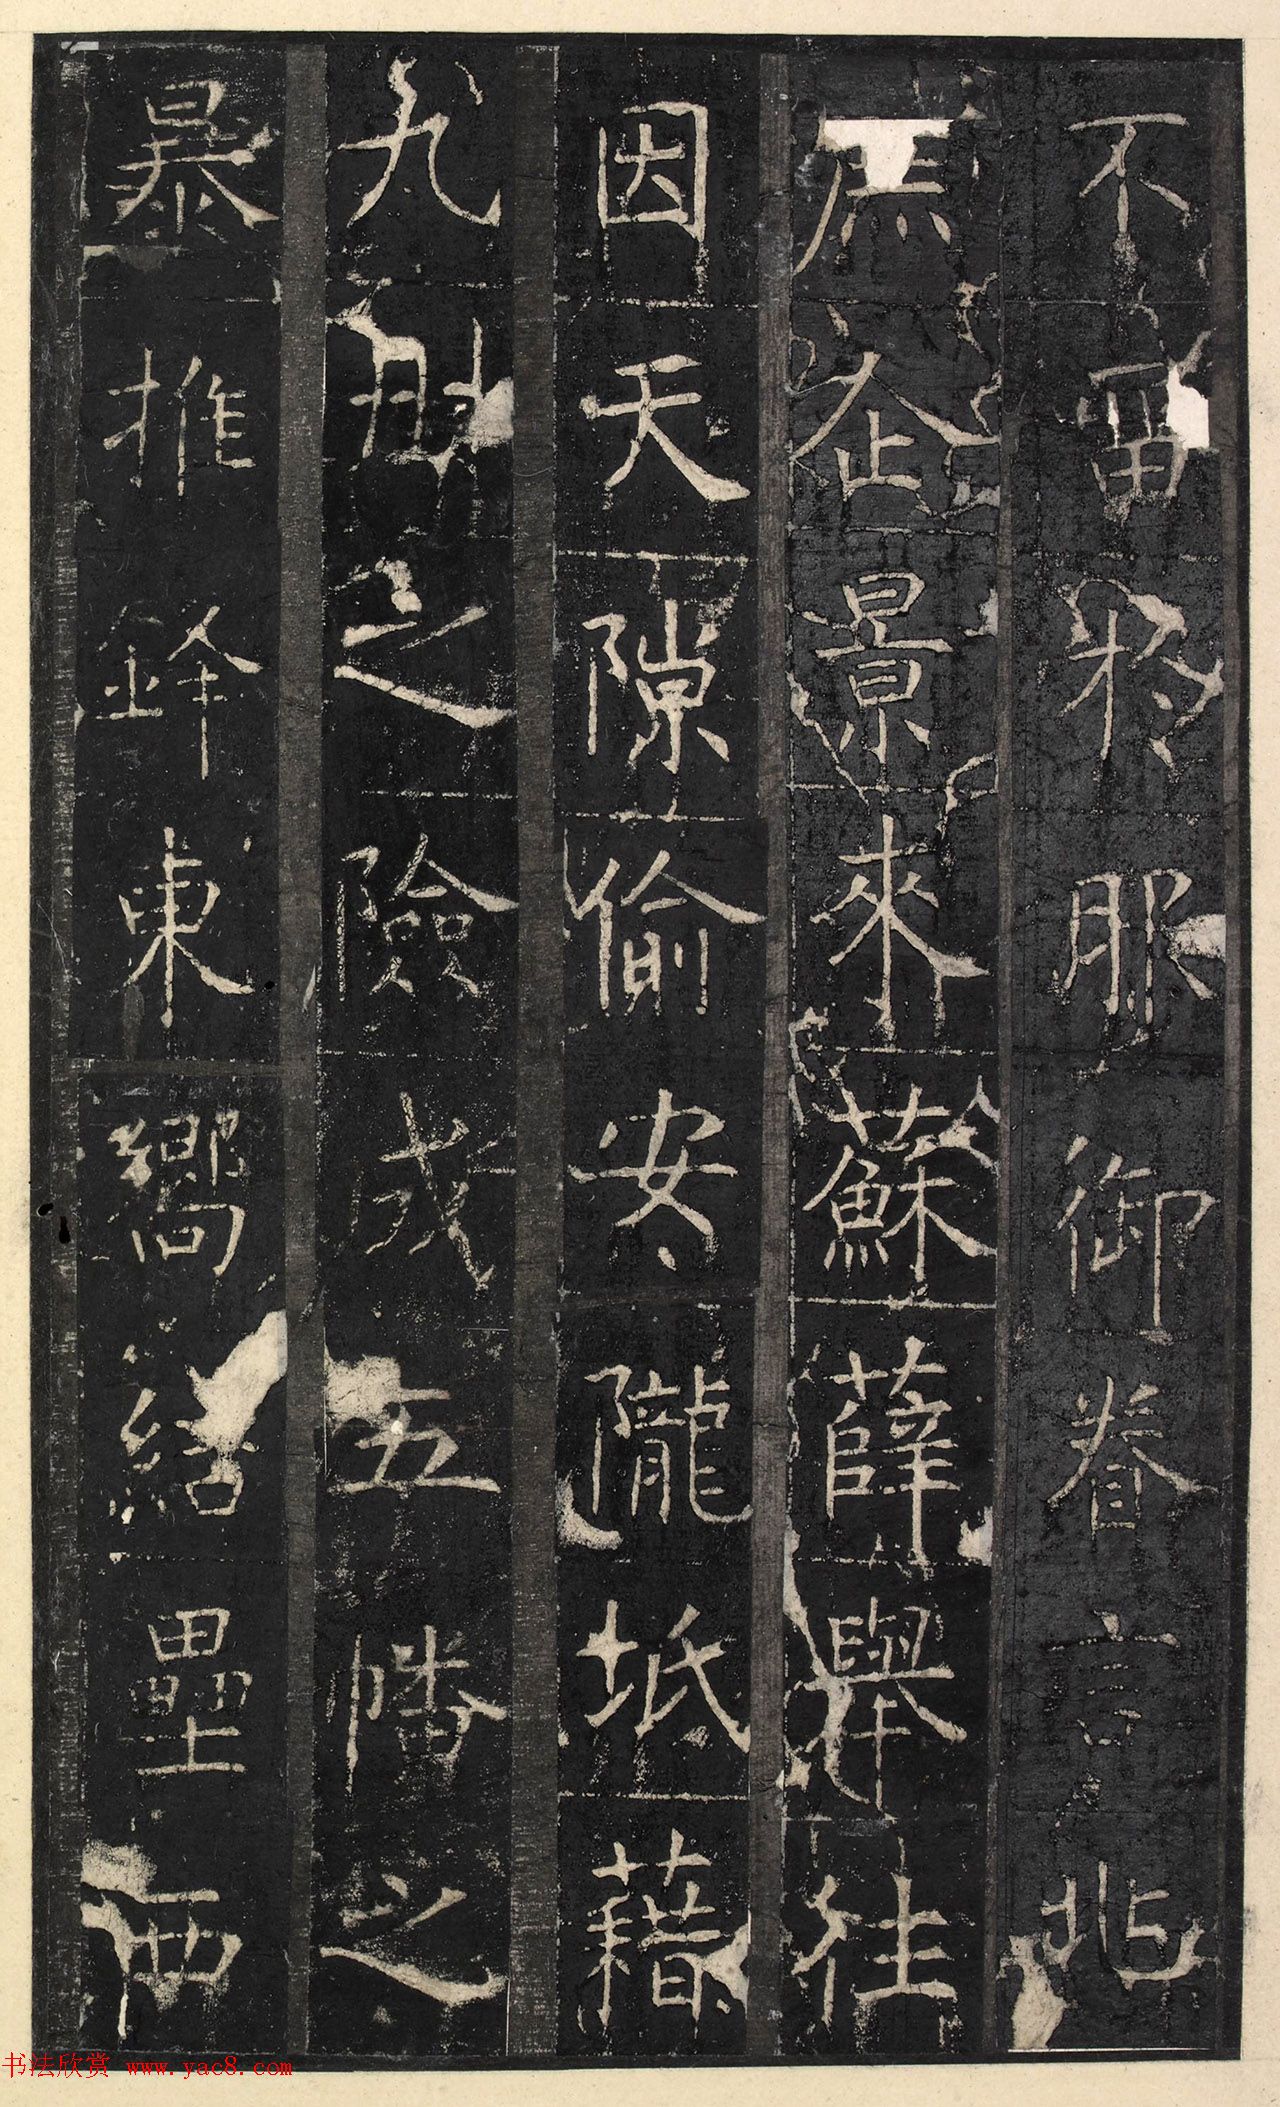 不雷於服御眷言
庶企景來蘇薛舉往
因天隙偷安隴坻藉
九州之險成五幡之
暴推鋒東嚮結壘西
书法欣赏 www.yac8.com